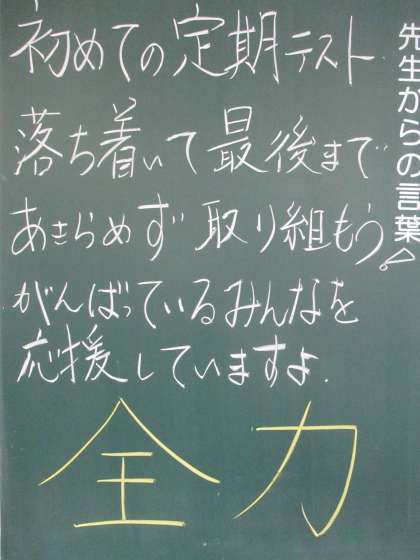 先生からの言葉
初めての定期テスト
落ち着いて最後まで
あきらめず取り組もう
がんばっているみんなを
応援していますよ.
全力